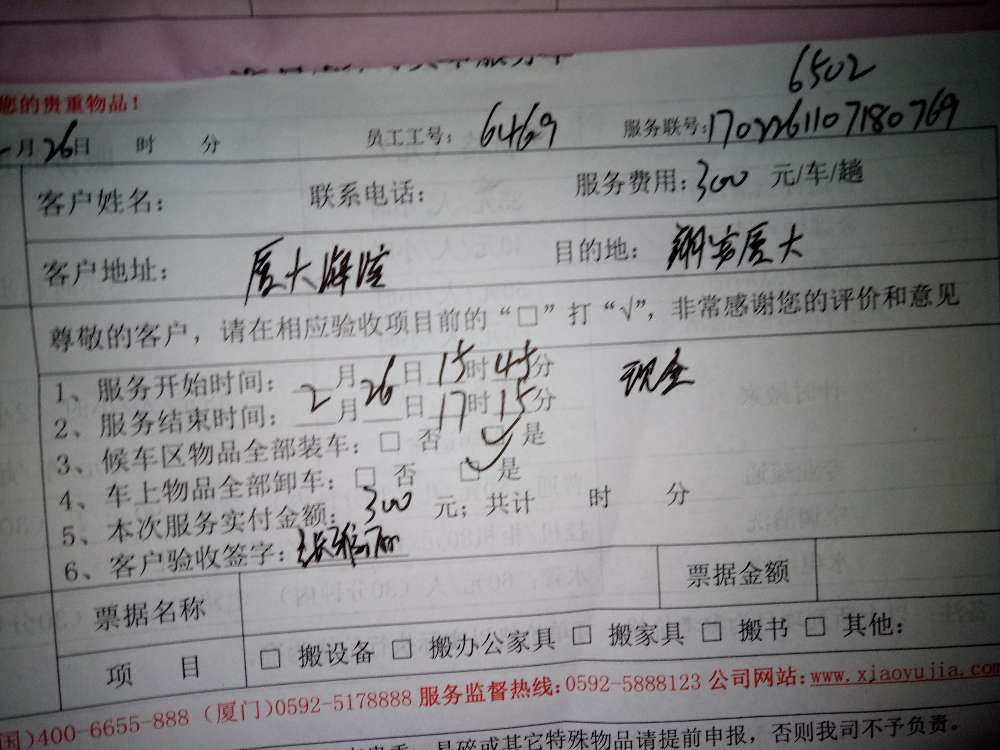 6502
您的贵重物品！
月26日 时 分 员工工号： 6469 服务联号：170226110718 0769
客户姓名： 联系电话： 服务费用：300 元/车/趟
客户地址： 厦大海滨 目的地： 翔安厦大
尊敬的客户，请在相应验收项目前的“□”打“√”，非常感谢您的评价和意见
1、服务开始时间： 2月26日15时45分 现金
2、服务结束时间： 月 日17时15分
3、候车区物品全部装车：□ 否 □ 是
4、车上物品全部卸车：□ 否 □ 是
5、本次服务实付金额：300 元；共计 时 分
6、客户验收签字：
票据名称 票据金额
项 目 □ 搬设备 □ 搬办公家具 □ 搬家具 □ 搬书 □ 其他：
国)400-6655-888 (厦门)0592-5178888 服务监督热线：0592-5888123 公司网站：www.xiaoyujia.com
易碎或其它特殊物品请提前申报，否则我司不予负责。